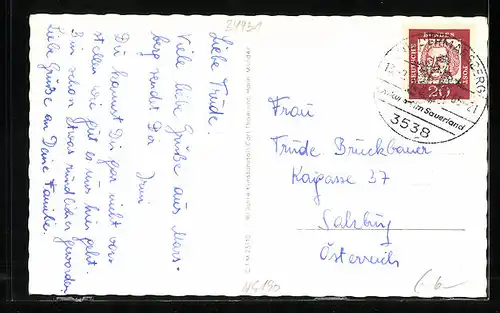 34931
Liebe Trude!
Viele liebe Grüße aus Mars-
berg sendet Dir
Du kannst Dir gar nicht vor-
stellen wie gut es mir hier geht.
Bin schon etwas rundlicher geworden.
Liebe Grüße an Deine Familie.
Frau
Trude Bruckbauer
Kaigasse 37
Salzburg
Österreich
DEUTSCHE
BUNDES
POST
20
im Sauerland
3538